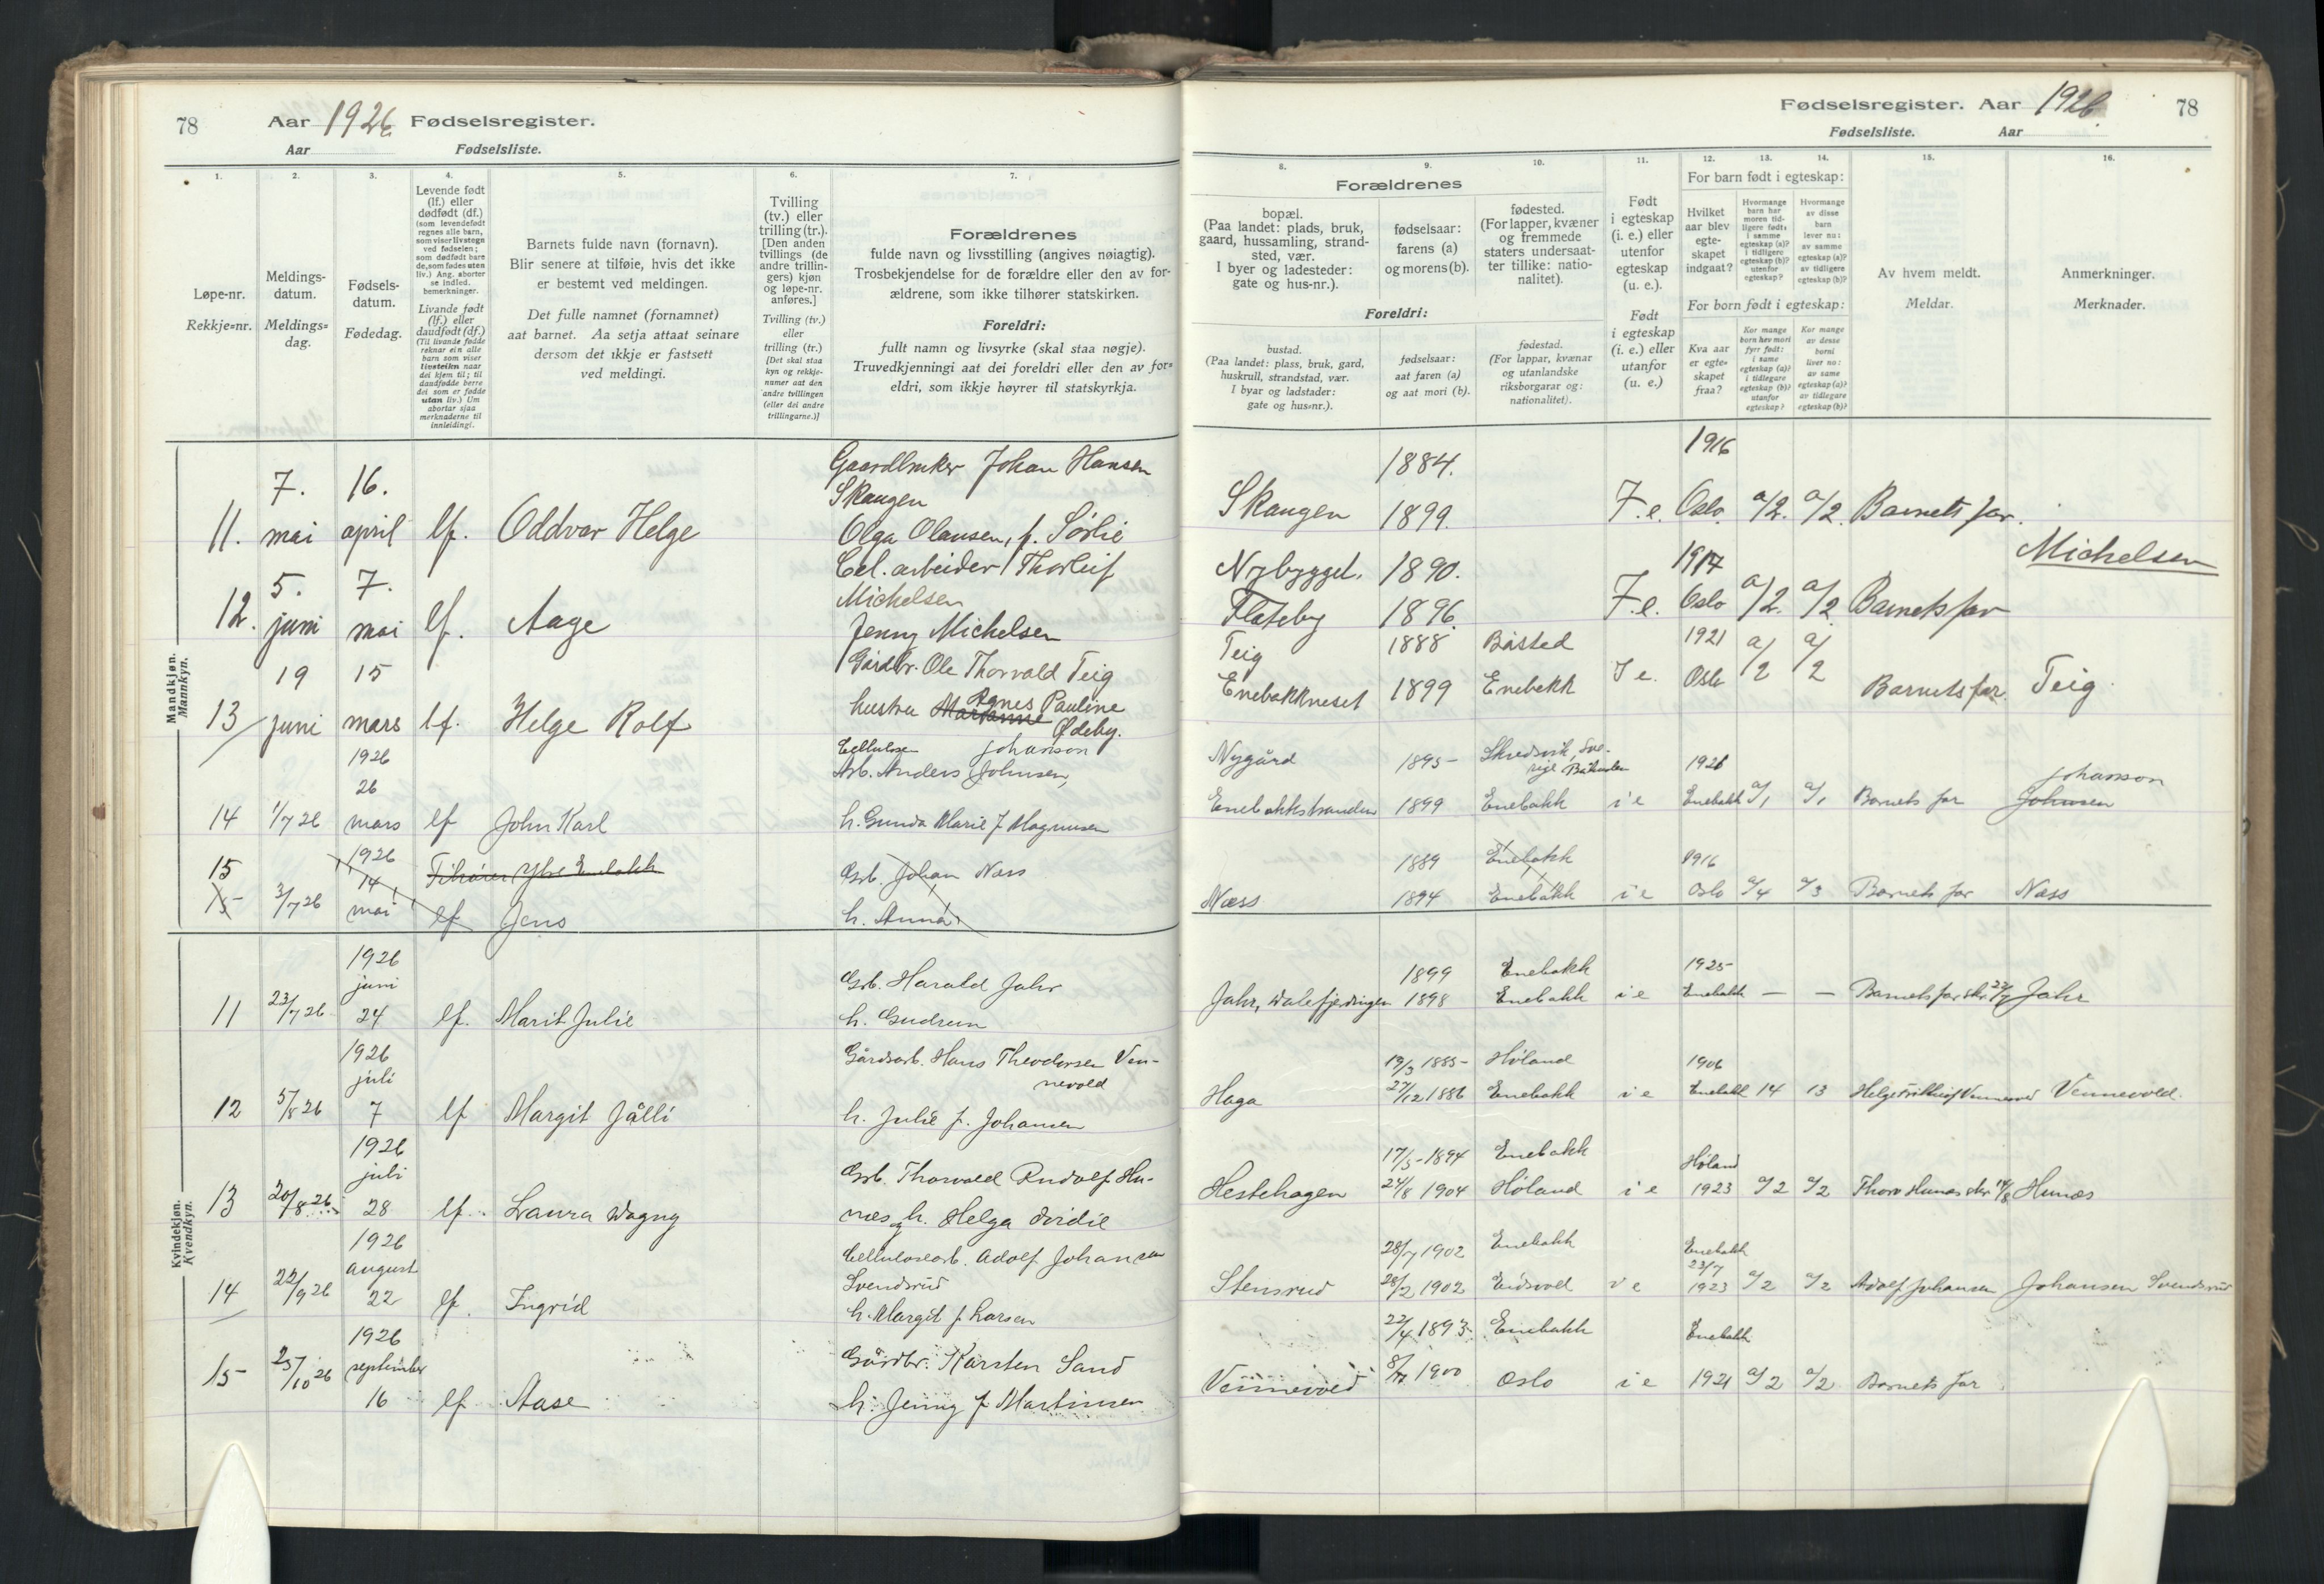 78 Aar 1926 Fødselsregister.
Aar Fødselsliste.
1. 2. 3. 4. 5. 6. 7.
Løpe-nr.
Rekkje=nr.
Meldings-
datum.
Meldings=
dag.
Fødsels-
datum.
Fødedag.
Levende født
(lf.) eller
dødfødt (df.)
(som levendefødt
regnes alle barn,
som viser livstegn
ved fødselen;
som dødfødt bare
de, som fødes uten
liv.) Ang. aborter
se indled.
bemerkninger.
Livande født
(lf.) eller
daudfødt (df.)
(Til livande fødde
reknar ein alle
barn som viser
livsteikn naar
dei kjem til; til
daudfødde berre
dei som er fødde
utan liv.) Um
abortar sjaa
merknaderne til
innleidingi.
Barnets fulde navn (fornavn).
Blir senere at tilføie, hvis det ikke
er bestemt ved meldingen.
Det fulle namnet (fornamnet)
aat barnet. Aa setja attaat seinare
dersom det ikkje er fastsett
ved meldingi.
Tvilling
(tv.) eller
trilling (tr.).
[Den anden
tvillings (de
andre trillin-
gers) kjøn
og løpe-nr.
anføres.]
Tvilling (tv.)
eller
trilling (tr.)
[Det skal staa
kyn og rekkje-
numer aat den
andre tvillingen
(eller dei andre
trillingarne.)]
Forældrenes
fulde navn og livsstilling (angives nøiagtig).
Trosbekjendelse for de forældre eller den av for-
ældrene, som ikke tilhører statskirken.
Foreldri:
fullt namn og livsyrke (skal staa nøgje).
Truvedkjenningi aat dei foreldri eller den av for=
eldri, som ikkje høyrer til statskyrkja.
Mandkjøn.
Mannkyn.
11. 7. mai 16. april lf. Oddvar Helge
Gaardbruker Johan Hansen
Skaugen
Olga Olausen, f. Sörlie
12. 5. juni 7. mai lf. Aage
Cel. arbeider Thorleif
Michelsen
Jenny Michelsen
13 19 juni 15 mars lf. Helge Rolf
Gårdbr. Ole Thorvald Teig
hustru Marianne Agnes Pauline
Ødeby.
14 1/7 26 1926 26 mars lf John Karl
Cellulose Johanson
Arb. Anders Johnsen,
h. Gunda Marie f Magnusen
15 15 3/7 26 1926 14 mai Tilhører Ytre Enebakk
lf Jens
Grb. Johan Næss
h. Anna
Kvindekjøn.
Kvendkyn.
11 23/7 26 1926 juni 24 lf. Marit Julie
Grb. Harald Jahr
h. Gudrun
12 5/8 26 1926 juli 7 lf Margit Jålli
Gårdsarb. Hans Theodorsen Ven-
nevold
h. Julie f. Johansen
13 20/8 26 1926 juli 28 lf. Laura Dagny
Grb. Thorvald Rudolf Hu-
næs g h. Helga Fridie
14 22/9 26 1926 august 22 lf. Ingrid
Cellulosearb. Adolf Johansen
Svendsrud
h. Margit f Larsen
15 25/10 26 1926 september 16 lf Aase
Gårdbr. Karsten Sand
h. Jenny f Martinsen
Fødselsregister. Aar 1926 78
Fødselsliste. Aar
8. 9. 10. 11. 12. 13. 14. 15. 16.
Forældrenes
bopæl.
(Paa landet: plads, bruk,
gaard, hussamling, strand-
sted, vær.
I byer og ladesteder:
gate og hus-nr.).
fødselsaar:
farens (a)
og morens (b).
fødested.
(For lapper, kvæner
og fremmede
staters undersaat-
ter tillike: natio-
nalitet).
Foreldri:
bustad.
(Paa landet: plass, bruk, gard,
huskrull, strandstad, vær.
I byar og ladstader:
gate og hus=nr.).
fødselsaar:
aat faren (a)
og aat mori (b).
fødestad.
(For lappar, kvænar
og utanlandske
riksborgarar og:
nationalitet).
Født
i egteskap
(i. e.) eller
utenfor
egteskap
(u. e.).
Født
i egteskap
(i. e.) eller
utanfor
(u. e.)
For barn født i egteskap:
Hvilket
aar blev
egte-
skapet
indgaat?
Hvormange
barn har
moren tid-
ligere født:
i samme
egteskap (a)?
i tidligere
egteskap (b)?
utenfor
egteskap?
Hvormange
av disse
barn
lever nu:
av samme
egteskap (a)?
av tidligere
egteskap (b)?
For born født i egteskap:
Kva aar
er egte-
skapet
fraa?
Kor mange
born hev mori
fyrr født:
i same
egteskap (a)?
i tidlegare
egteskap (b)?
utanfor
egteskap?
Kor mange
av desse
borni
liver no:
av same
egteskap (a)?
av tidlegare
egteskap (b)?
Av hvem meldt.
Meldar.
Anmerkninger.
Merknader.
1884. 1916
Skaugen 1899. F.e. Oslo. a/2. a/2. Barnets far.
Michelsen
Nybygget. 1890. 1917
Flateby 1896. F.e. Oslo a/2. a/2 Barnets far
Teig 1888 Båsted 1921
Enebakkneset 1899 Enebakk I e. Oslo a/2 a/2 Barnets far. Teig
Nygård 1895 Skredsvik, Sve-
rige Båhuslen 1926 Johanson
Enebakkstranden 1899 Enebakk i e Enebakk a/1 a/1 Barnets far Johnsen
1889 Enebakk 1916
Næss 1894 Enebakk i e Oslo a/4 a/3 Barnets far Næss
1899 Enebakk 1925
Jahr, Dalefjerdingen 1898 Enebakk i e Enebakk — — Barnets far skr. 22/7 Jahr
19/3 1885 Höland 1906
Haga 27/12 1886 Enebakk i e Enebakk 14 13 Helge Fritthiof Vennevold Vennevold.
17/5-1894 Enebakk Höland
Hestehagen 24/8 1904 Höland i e 1923 a/2 a/2 Thorv Hunæs skr 14/8 Hunæs
28/7 1902 Enebakk Enebakk
23/7
Stensrud 28/2 1902 Eidsvold v e 1923 a/2 a/2 Adolf Johansen Johansen Svendsrud
22/4 1893 Enebakk Enebakk
Vennevold 1900 Oslo i e 1921 a/2 a/2 Barnets far